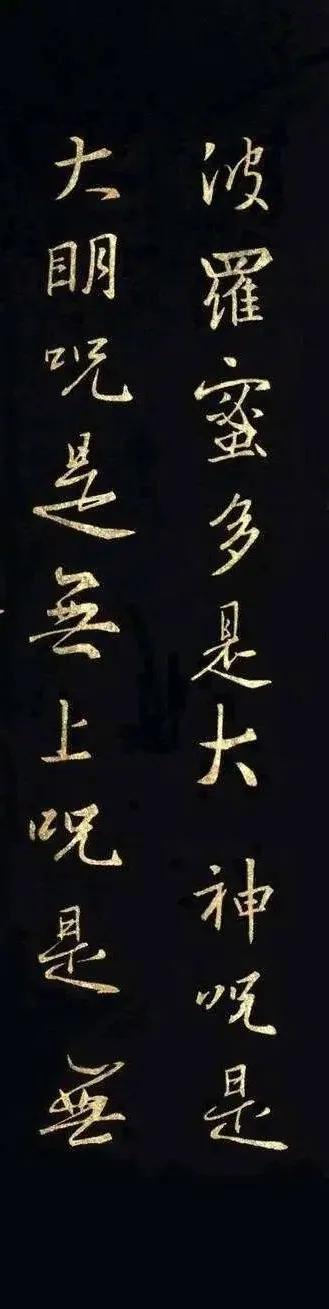 波羅蜜多是大神呪是
大明呪是無上呪是無